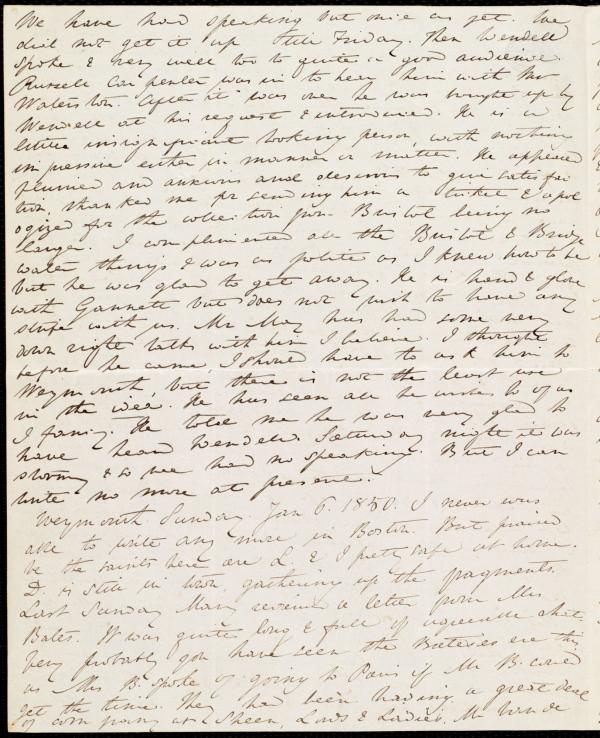 We have had speaking but once as yet. We
did not get it up till Friday. Then Wendell
Spoke & very well too to quite a good audience.
Russell Carpenter was in to hear him with Mr
Waterston. After it was over he was brought up by
Wendell at his request & introduced. He is a
little insignificant looking person, with nothing
impressive either in manner or matter. He appeared
flurried and anxious and desirous to give satisfac
tion, thanked me for sending him a ticket & apol
ogized for the collection from Bristol being no
larger. I complimented all the Bristol & Bridge
water things & was as polite as I knew how to be
but he was glad to get away. He is hand & glove
with Gannett but does not wish to have any
strife with us. Mr May has had some very
down right talks with him I believe. I thought
before he came, I should have to ask him to
Weymouth, but there is not the least use
in the idea. He has seen all he wishes to of us
I fancy. He told me he was very glad to
have heard Wendell. Saturday night it was
stormy & so we had no speaking. But I can
write no more at present.
Weymouth Sunday. Jan 6. 1850. I never was
able to write any more in Boston. But praised
be the saints here are L. & I pretty safe at home.
D. is still in town gathering up the fragments.
Last Sunday Mary received a letter from Mrs
Bates. It was quite long & full of agreeable chat.
Very probably you have seen the Bateses ere this
as Mrs B. spoke of going to Paris if Mr B. could
get the time. They had been having a great deal
of company at Sheen, Lords & Ladies, M. Van de